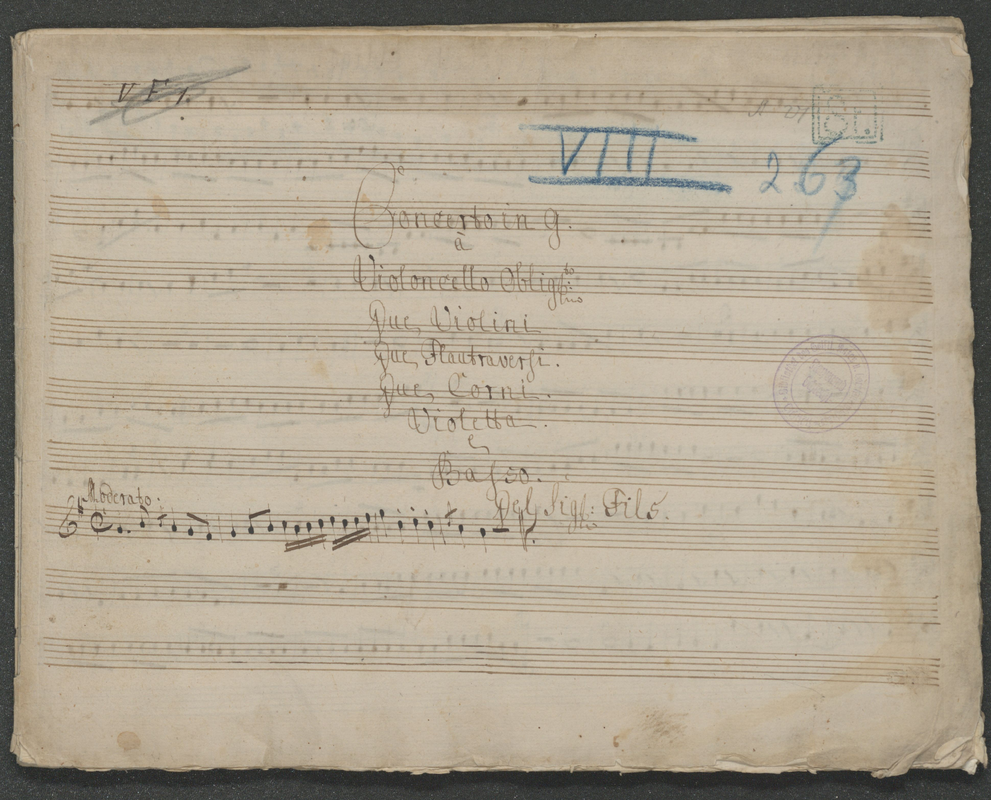 V. F. 1.
VIII 263
Concerto in g.
à
Violoncello Oblig:to
Due Violini
Due Flautraversi.
Due Corni.
Violetta.
e
Basso.
Moderato:
Del Sig: Fils.